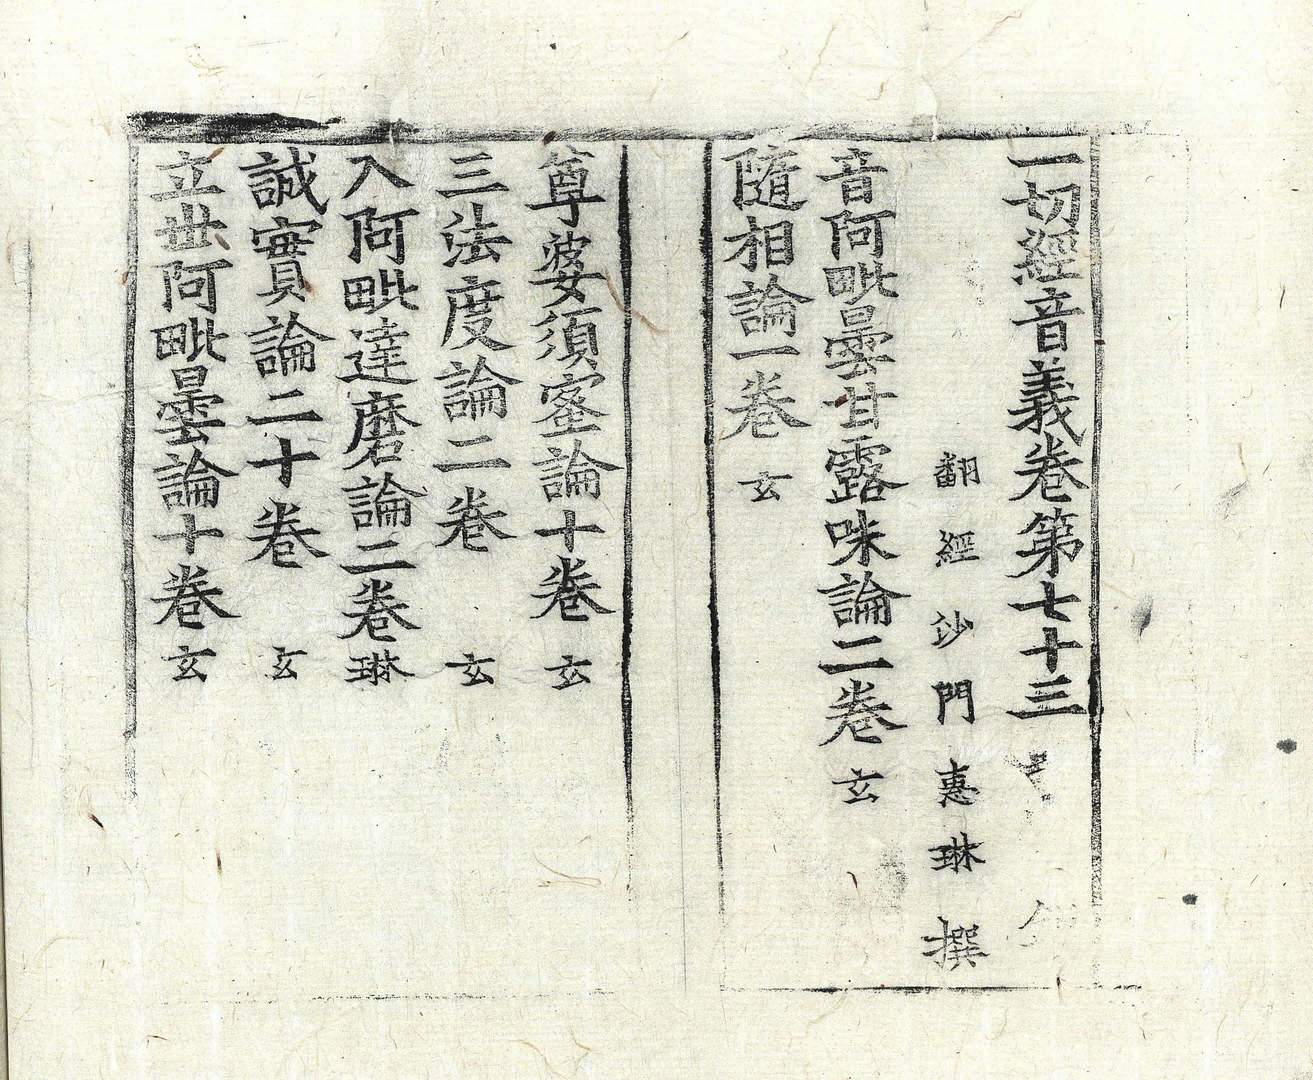 一切經音義卷第七十三
翻經沙門惠琳撰
音阿毗曇甘露味論二卷 玄
隨相論一卷 玄
尊婆須蜜論十卷 玄
三法度論二卷 玄
入阿毗達磨論二卷 琳
誠實論二十卷 玄
立世阿毗曇論十卷 玄